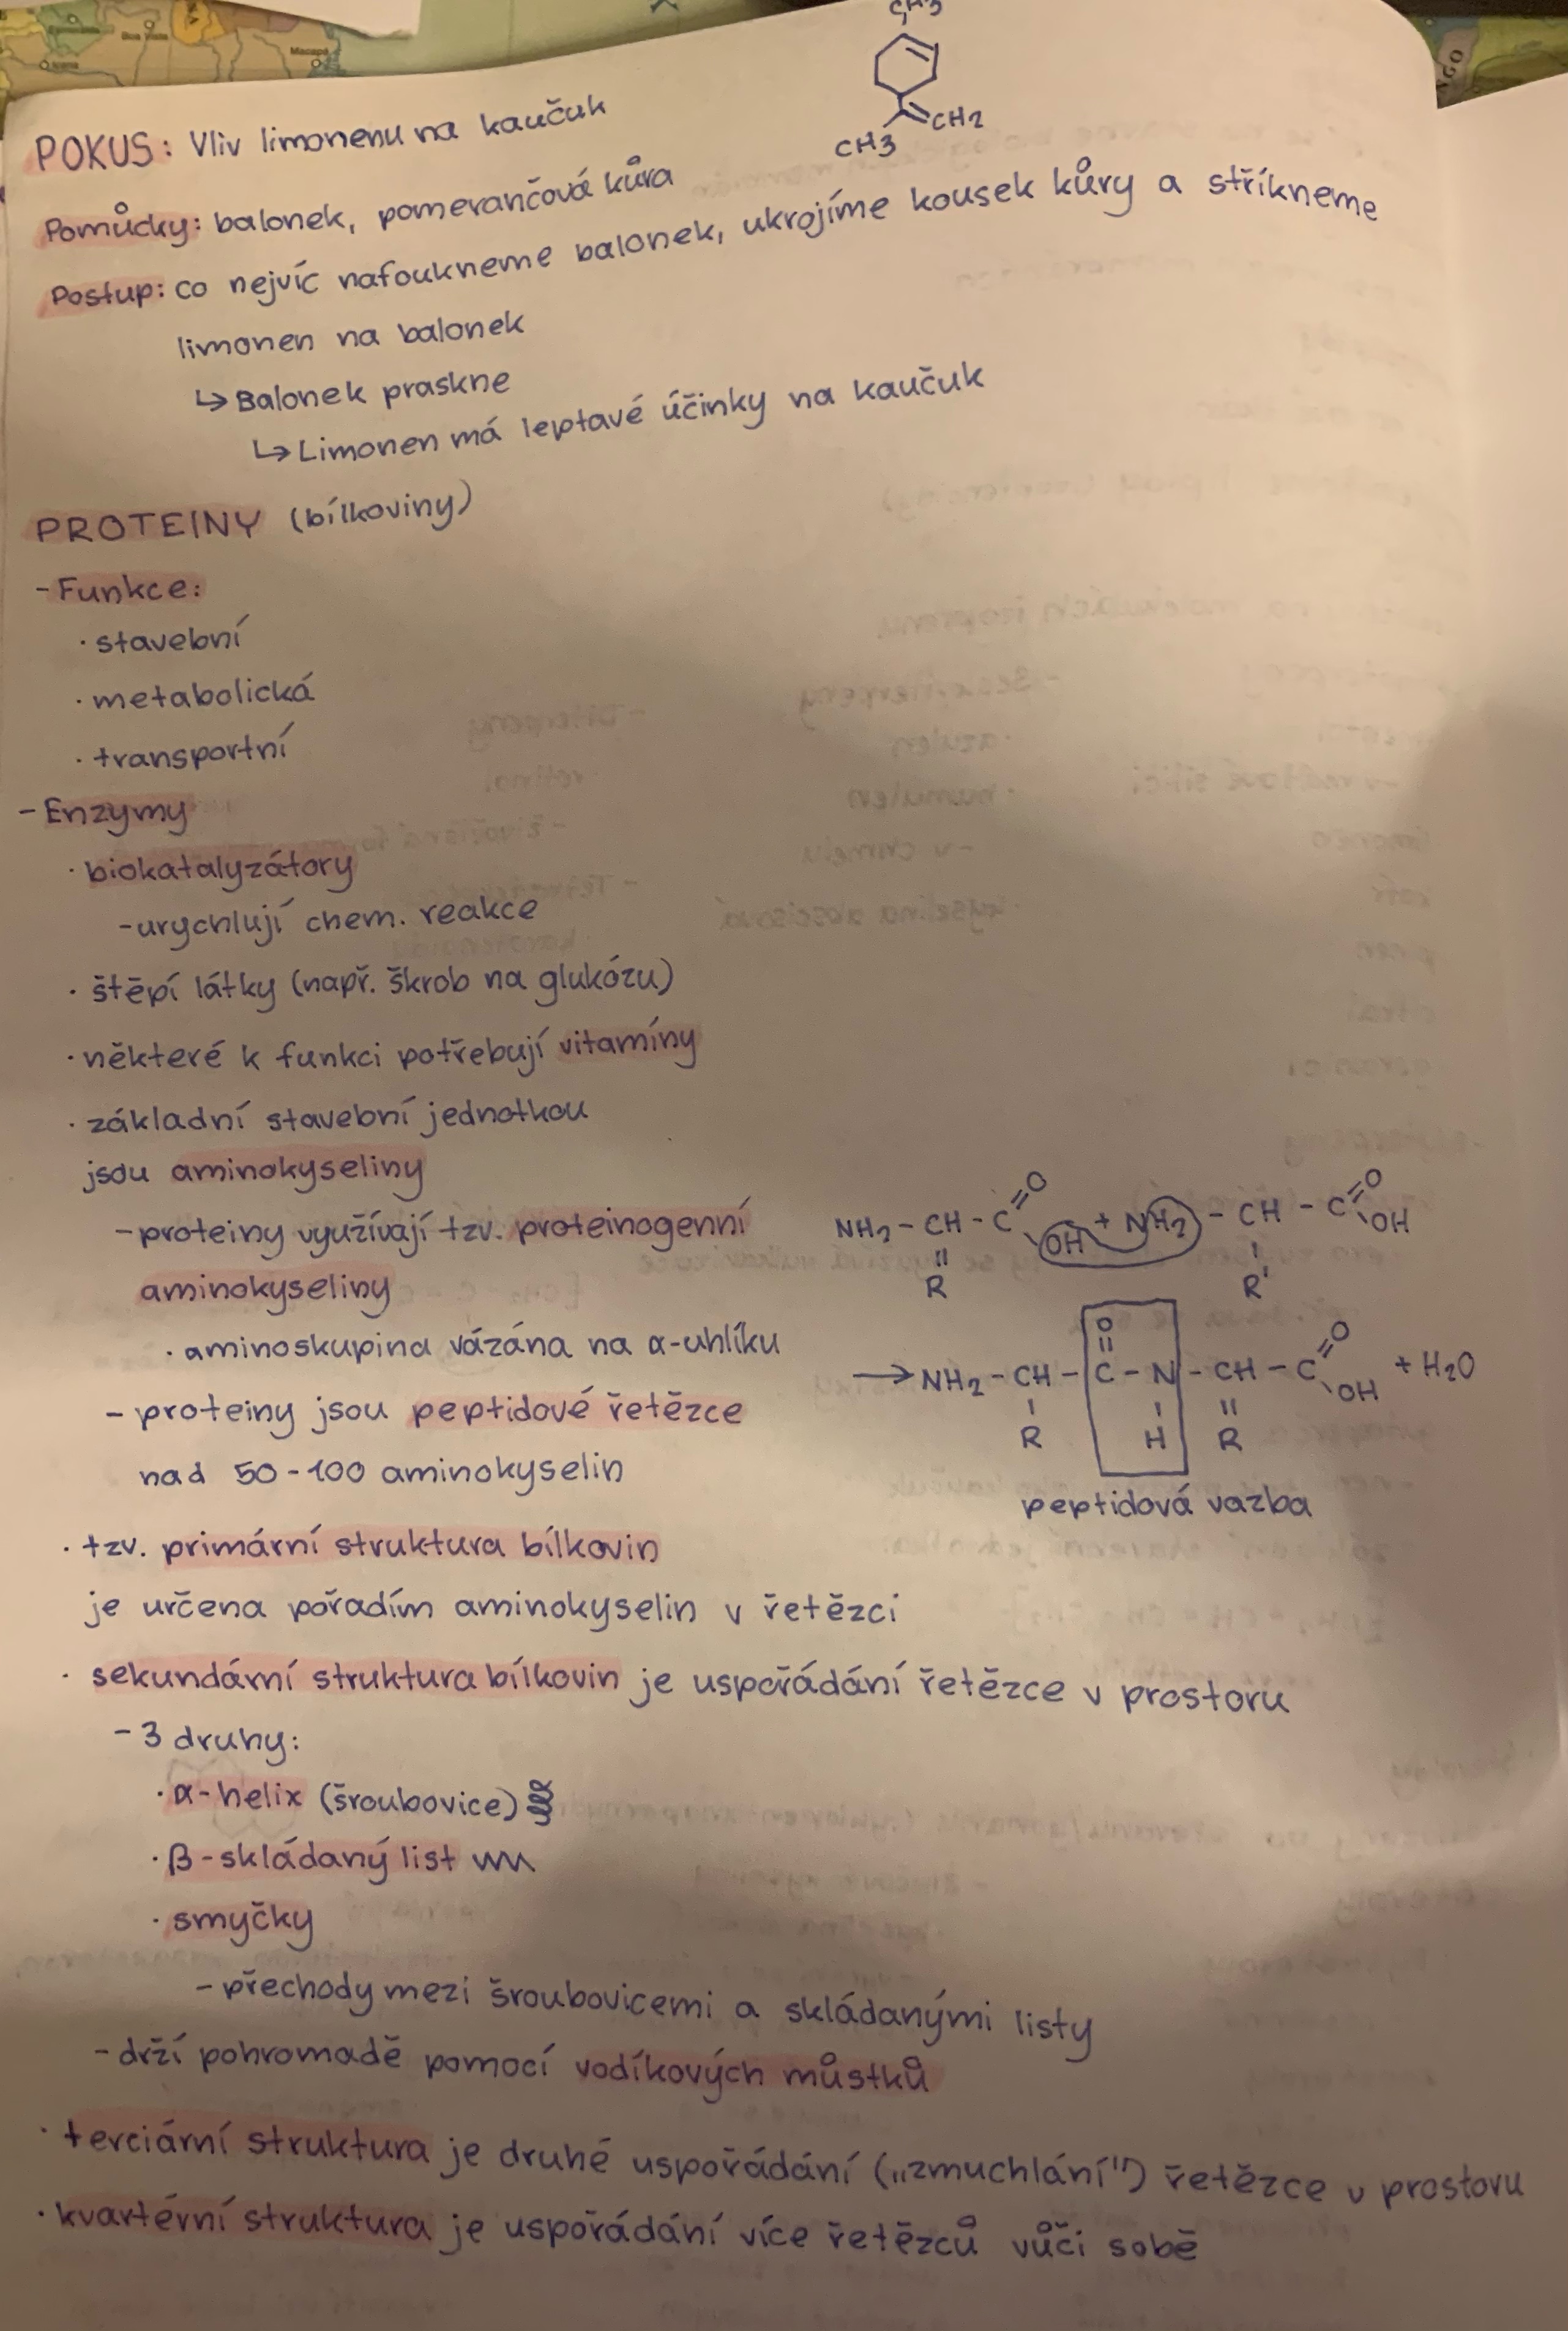 CH3
CH2
CH3
POKUS: Vliv limonenu na kaučuk
Pomůcky: balonek, pomerančová kůra
Postup: co nejvíc nafoukneme balonek, ukrojíme kousek kůry a stříkneme
limonen na balonek
↳ Balonek praskne
↳ Limonen má leptavé účinky na kaučuk
PROTEINY (bílkoviny)
- Funkce:
· stavební
· metabolická
· transportní
- Enzymy
· biokatalyzátory
- urychlují chem. reakce
· štěpí látky (např. škrob na glukózu)
· některé k funkci potřebují vitamíny
· základní stavební jednotkou
jsou aminokyseliny
- proteiny využívají tzv. proteinogenní
aminokyseliny
· aminoskupina vázána na α-uhlíku
- proteiny jsou peptidové řetězce
nad 50-100 aminokyselin
NH2 - CH - C =O \OH + NH2 - CH - C =O \OH
R R'
→ NH2 - CH - C - N - CH - C =O \OH + H2O
O
R H R
peptidová vazba
· tzv. primární struktura bílkovin
je určena pořadím aminokyselin v řetězci
· sekundární struktura bílkovin je uspořádání řetězce v prostoru
- 3 druhy:
· α-helix (šroubovice)
· β-skládaný list
· smyčky
- přechody mezi šroubovicemi a skládanými listy
- drží pohromadě pomocí vodíkových můstků
· terciární struktura je druhé uspořádání („zmuchlání") řetězce v prostoru
· kvartérní struktura je uspořádání více řetězců vůči sobě